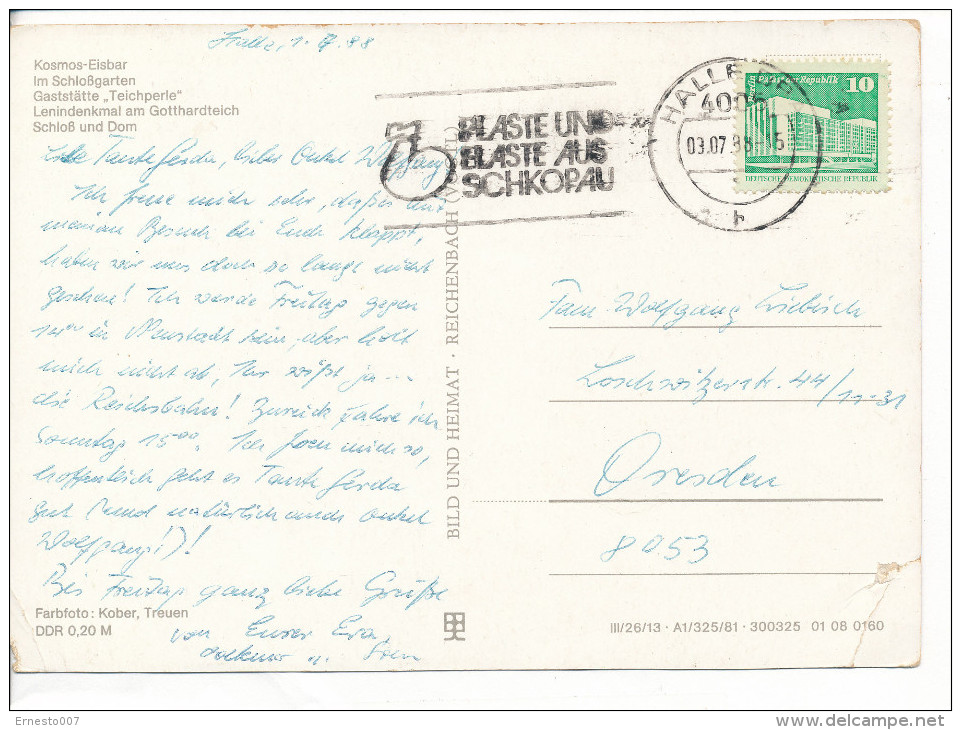 Halle, 1. 7. 88
Kosmos-Eisbar
Im Schloßgarten
Gaststätte „Teichperle"
Lenindenkmal am Gotthardteich
Schloß und Dom
Liebe Tante Gerda, lieber Onkel Wolfgang
Ich freue mich sehr, daß es mit
meinem Besuch bei Euch klappt,
haben wir uns doch so lange nicht
gesehen! Ich werde Freitag gegen
14⁰⁰ in Neustadt sein, aber holt
mich nicht ab, Ihr wißt ja ...
die Reichsbahn! Zurück fahre ich
Sonntag 15⁰⁰. Ich freu mich so,
hoffentlich geht es Tante Gerda
gut (und natürlich auch Onkel
Wolfgang!)!
Bis Freitag ganz liebe Grüße
von Eurer Eva,
u.
Farbfoto: Kober, Treuen
DDR 0,20 M
BILD UND HEIMAT · REICHENBACH (VOGTL)
75 PLASTE UND
ELASTE AUS
SCHKOPAU
HALLE
03.07.88-15
Berlin, Palast der Republik
10
DEUTSCHE DEMOKRATISCHE REPUBLIK
Fam Wolfgang Liebisch
Loschwitzerstr. 44/11-31
Dresden
8053
III/26/13 · A1/325/81 · 300325 01 08 0160
Ernesto007
delcampe.net